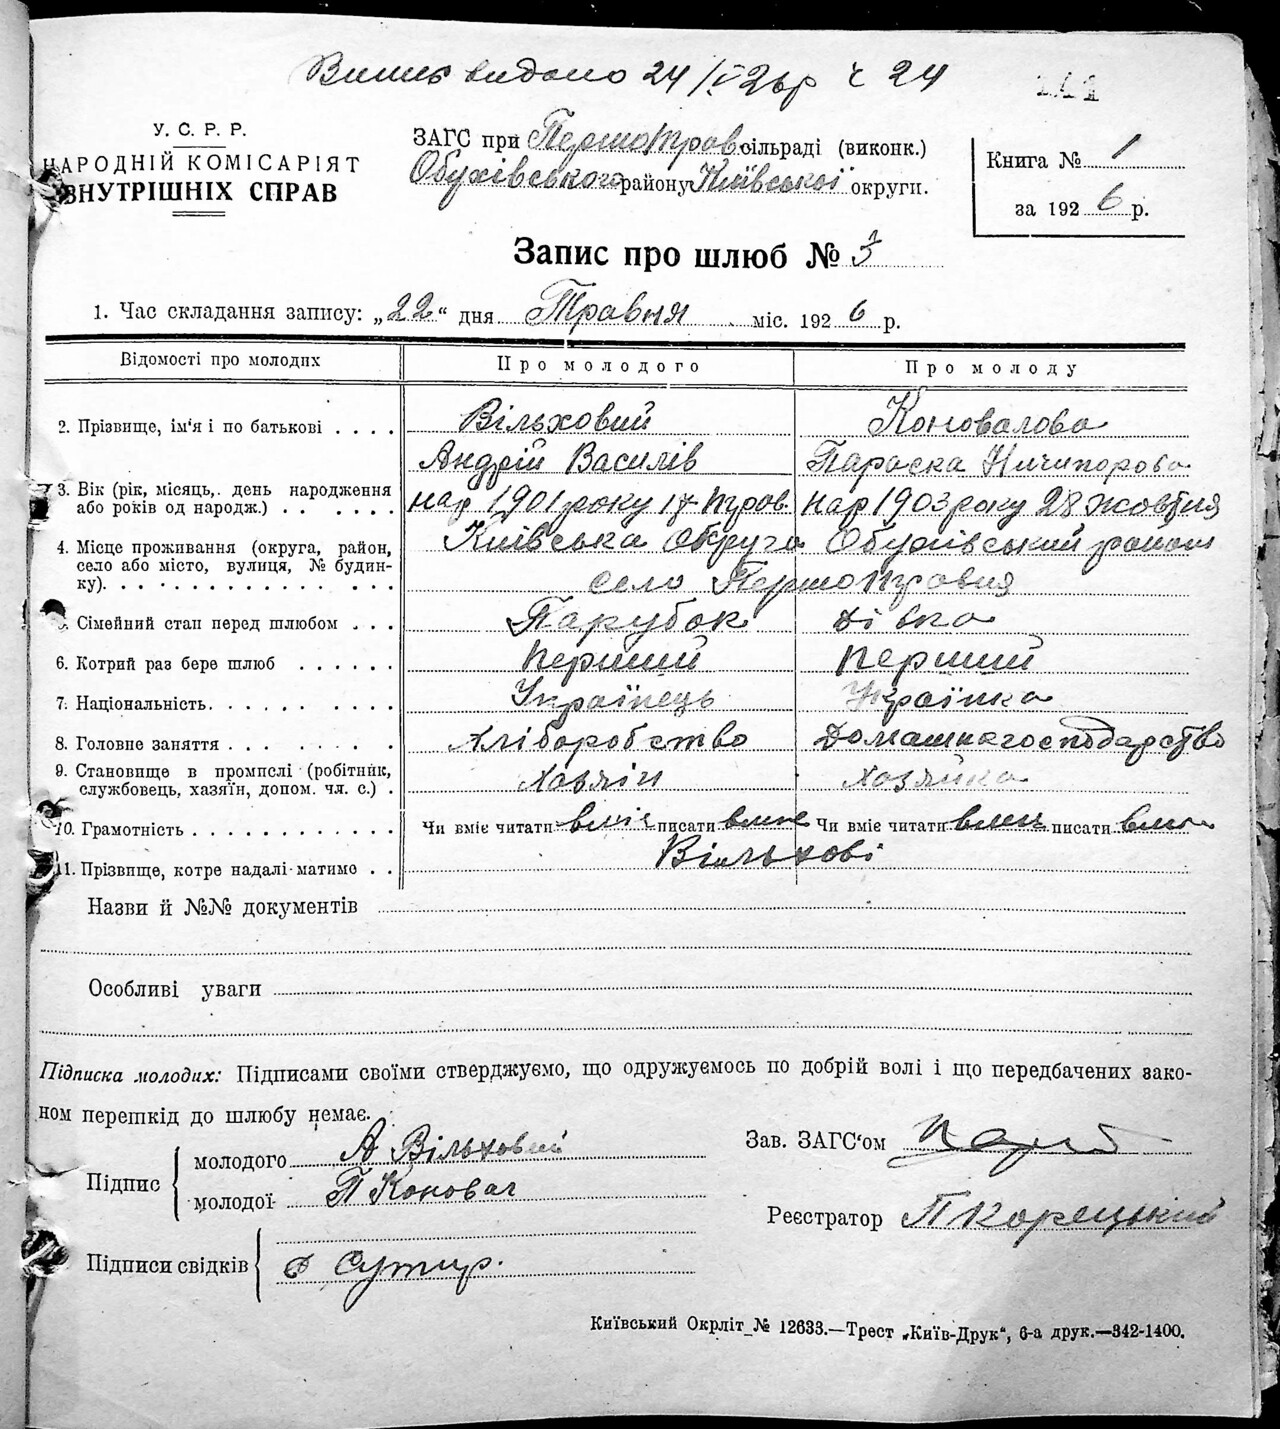 видано 24 24
У. С. Р. Р.
НАРОДНІЙ КОМІСАРІЯТ
ВНУТРІШНІХ СПРАВ
ЗАГС при ПершоТрав сільраді (виконк.)
Обухівського району Київської округи.
Книга № 1
за 1926 р.
Запис про шлюб №
1. Час складання запису: „22“ дня Травня міс. 1926 р.
Відомості про молодих Про молодого Про молоду
2. Прізвище, ім'я і по батькові . . . . Вільховий Коновалова
Андрій Василів Параска Ничипорова
3. Вік (рік, місяць,. день народження нар 1901 року 17 трав. нар 1903 року 28 жовтня
або років од народж.) . . . . . .
4. Місце проживання (округа, район, Київська Округа Обухівський район
село або місто, вулиця, № будин-
ку). . . . . . . . . . . . . . . село ПершоТравня
5. Сімейний стан перед шлюбом . . . Парубок Дівка
6. Котрий раз бере шлюб . . . . . . перший перший
7. Національність. . . . . . . . . . Українець Українка
8. Головне заняття . . . . . . . . Хліборобство Домашнагосподарство
9. Становище в промислі (робітник, Хазяін Хазяйка
службовець, хазяїн, допом. чл. с.) .
10. Грамотність . . . . . . . . . . . . . Чи вміє читати вміє писати вміє Чи вміє читати писати
11. Прізвище, котре надалі матиме . . Вільхові
Назви й №№ документів
Особливі уваги
Підписка молодих: Підписами своїми стверджуємо, що одружуемось по добрій волі і що передбачених зако-
ном перешкід до шлюбу немає.
Підпис
молодого А Вільховий
молодої П Коновал
Зав. ЗАГС'ом
Реєстратор П Корецький
Підписи свідків
Київський Окрліт № 12633.—Трест „Київ-Друк“, 6-а друк.—342-1400.